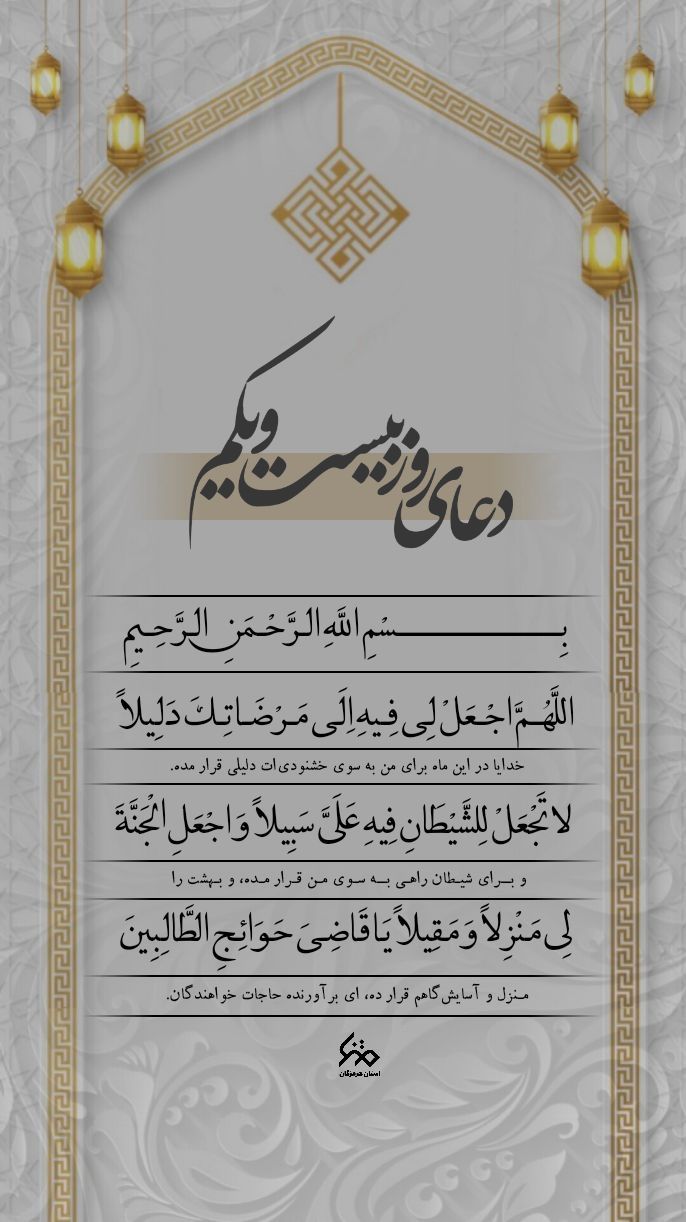 دعای روز بیست و یکم
بِسْمِ اللَّهِ الرَّحْمَنِ الرَّحِيمِ
اللَّهُمَّ اجْعَلْ لِی فِیهِ اِلَی مَرْضَاتِكَ دَلِیلاً
خدایا در این ماه برای من به سوی خشنودی‌ات دلیلی قرار مده.
لا تَجْعَلْ لِلشَّیْطَانِ فِیهِ عَلَیَّ سَبِیلاً وَ اجْعَلِ الْجَنَّةَ
و برای شیطان راهی به سوی من قرار مده، و بهشت را
لِی مَنْزِلاً وَ مَقِیلاً یَا قَاضِیَ حَوَائِجِ الطَّالِبِینَ
منزل و آسایش‌گاهم قرار ده، ای برآورنده حاجات خواهندگان.
استان هرمزگان